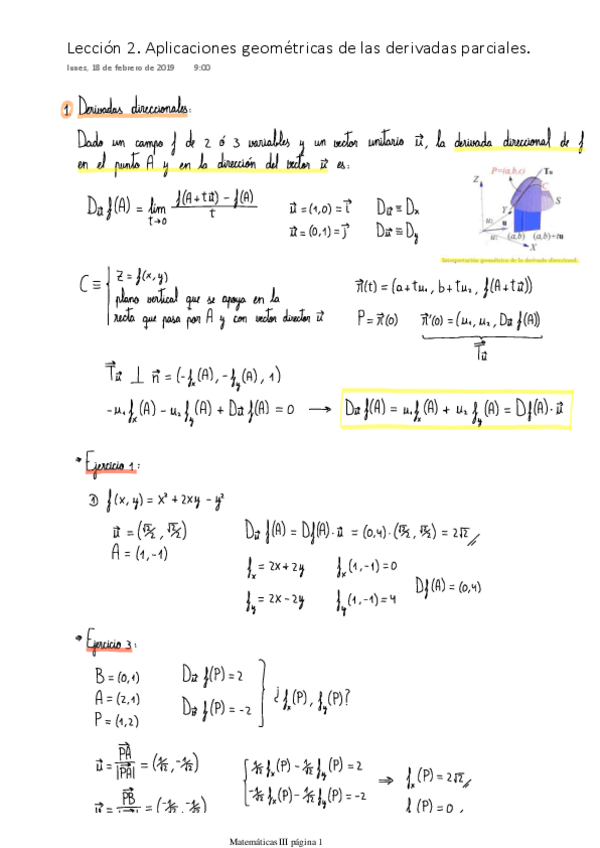 Lección 2. Aplicaciones geométricas de las derivadas parciales.
lunes, 18 de febrero de 2019 9:00
① Derivadas direccionales:
Dado un campo f de 2 ó 3 variables y un vector unitario u⃗, la derivada direccional de f
en el punto A y en la dirección del vector u⃗ es:
Du⃗ f(A) = lim t→0 (f(A+tu⃗) - f(A))/t
u⃗ = (1,0) = i⃗ Du⃗ ≡ Dx
u⃗ = (0,1) = j⃗ Du⃗ ≡ Dy
P=(a,b,c) Tu
Z C S
Y u
X (a,b) (a,b)+tu
Interpretación geométrica de la derivada direccional.
C ≡ { z = f(x,y)
plano vertical que se apoya en la
recta que pasa por A y con vector director u⃗
r⃗(t) = (a+tu₁, b+tu₂, f(A+tu⃗))
P = r⃗(0) r⃗'(0) = (u₁, u₂, Du⃗ f(A))
T⃗u⃗
T⃗u⃗ ⊥ n⃗ = (-fx(A), -fy(A), 1)
-u₁fx(A) - u₂fy(A) + Du⃗ f(A) = 0 → Du⃗ f(A) = u₁fx(A) + u₂fy(A) = Df(A)·u⃗
* Ejercicio 1:
① f(x,y) = x² + 2xy - y²
u⃗ = (√2/2, √2/2) Du⃗ f(A) = Df(A)·u⃗ = (0,4)·(√2/2, √2/2) = 2√2 //
A = (1,-1)
fx = 2x+2y fx(1,-1) = 0
fy = 2x-2y fy(1,-1) = 4
Df(A) = (0,4)
* Ejercicio 3:
B = (0,1)
A = (2,1)
P = (1,2)
Du⃗ f(P) = 2
Dv⃗ f(P) = -2
¿fx(P), fy(P)?
u⃗ = PA/|PA| = (1/√2, -1/√2)
{ 1/√2 fx(P) - 1/√2 fy(P) = 2
-1/√2 fx(P) - 1/√2 fy(P) = -2
⇒ fx(P) = 2√2 //
PB
= (-1/√2, -1/√2)
(P) = 0
Matemáticas III página 1